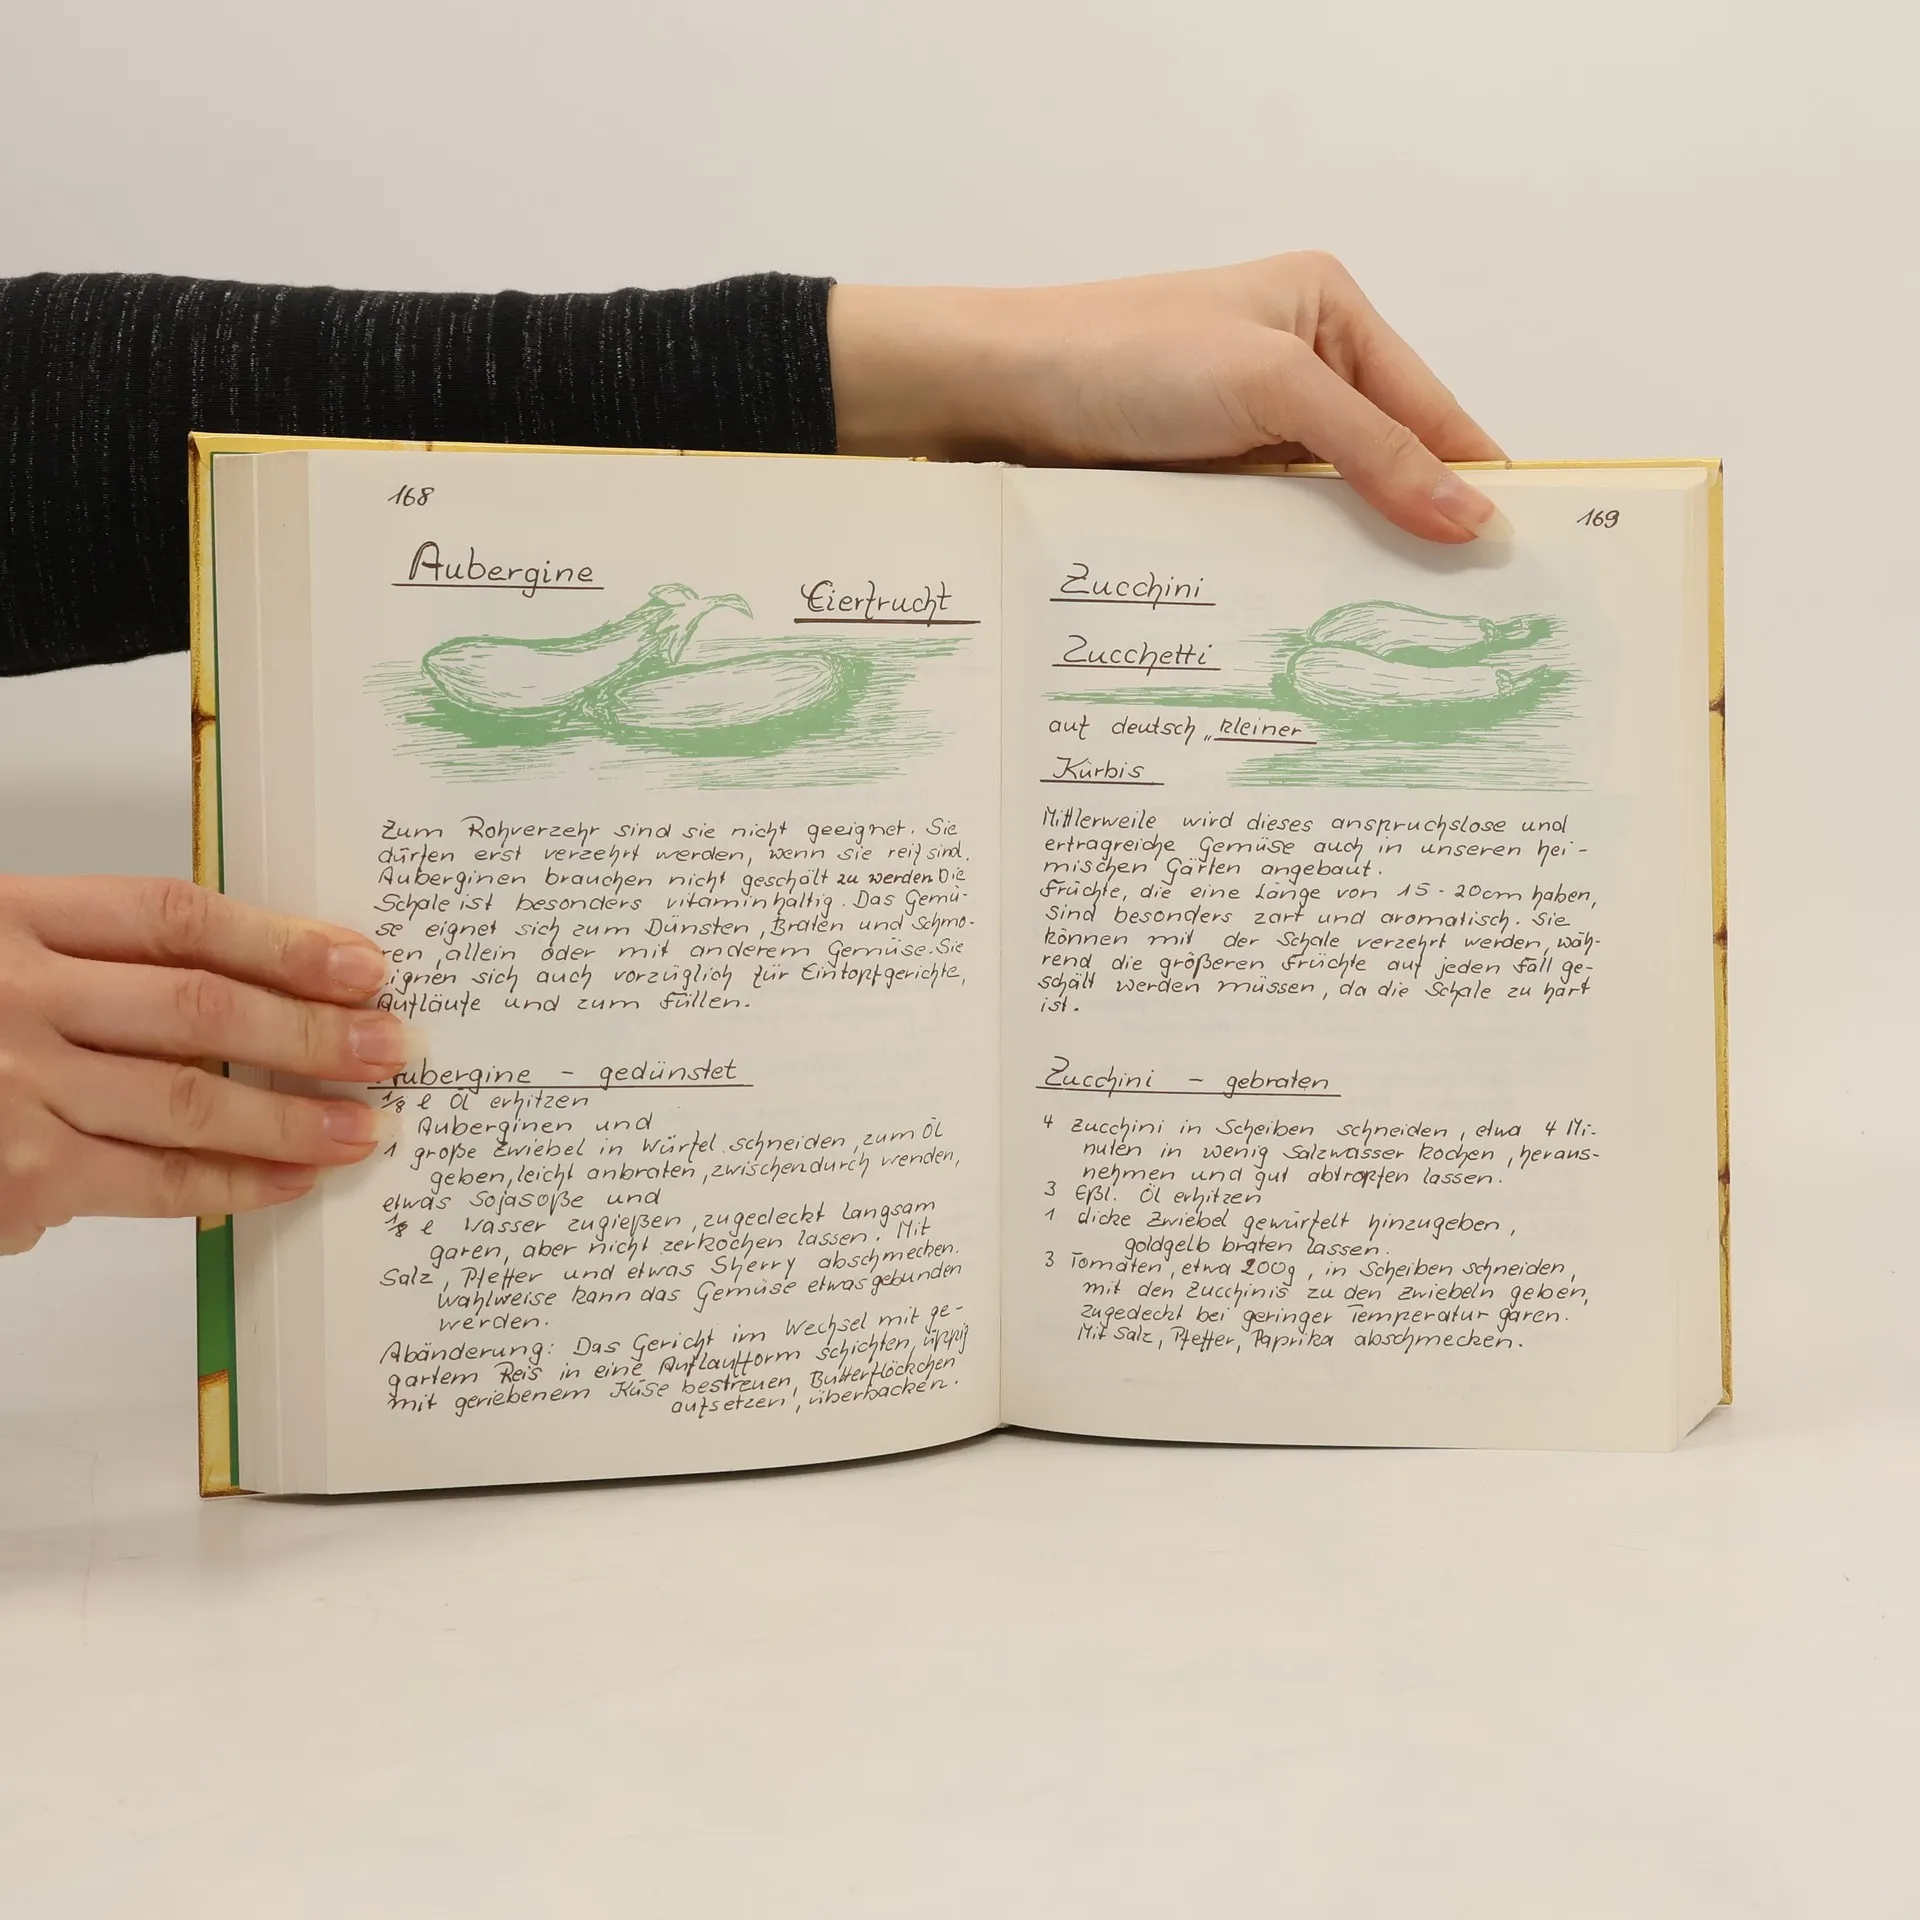 168
Aubergine
Eierfrucht
Zum Rohverzehr sind sie nicht geeignet. Sie
dürfen erst verzehrt werden, wenn sie reif sind.
Auberginen brauchen nicht geschält zu werden. Die
Schale ist besonders vitaminhaltig. Das Gemü-
se eignet sich zum Dünsten, Braten und Schmo-
ren, allein oder mit anderem Gemüse. Sie
eignen sich auch vorzüglich für Eintopfgerichte,
Aufläufe und zum Füllen.
Aubergine - gedünstet
1/8 l Öl erhitzen
Auberginen und
1 große Zwiebel in Würfel schneiden, zum Öl
geben, leicht anbraten, zwischendurch wenden,
etwas Sojasoße und
1/8 l Wasser zugießen, zugedeckt langsam
garen, aber nicht zerkochen lassen. Mit
Salz, Pfeffer und etwas Sherry abschmecken.
Wahlweise kann das Gemüse etwas gebunden
werden.
Abänderung: Das Gericht im Wechsel mit ge-
gartem Reis in eine Auflaufform schichten, üppig
mit geriebenem Käse bestreuen, Butterflöckchen
aufsetzen, überbacken.
169
Zucchini
Zucchetti
auf deutsch „kleiner
Kürbis
Mittlerweile wird dieses anspruchslose und
ertragreiche Gemüse auch in unseren hei-
mischen Gärten angebaut.
Früchte, die eine Länge von 15 - 20cm haben,
sind besonders zart und aromatisch. Sie
können mit der Schale verzehrt werden, wäh-
rend die größeren Früchte auf jeden Fall ge-
schält werden müssen, da die Schale zu hart
ist.
Zucchini - gebraten
4 Zucchini in Scheiben schneiden, etwa 4 Mi-
nuten in wenig Salzwasser kochen, heraus-
nehmen und gut abtropfen lassen.
3 Eßl. Öl erhitzen
1 dicke Zwiebel gewürfelt hinzugeben,
goldgelb braten lassen.
3 Tomaten, etwa 200g, in Scheiben schneiden,
mit den Zucchinis zu den Zwiebeln geben,
zugedeckt bei geringer Temperatur garen.
Mit Salz, Pfeffer, Paprika abschmecken.